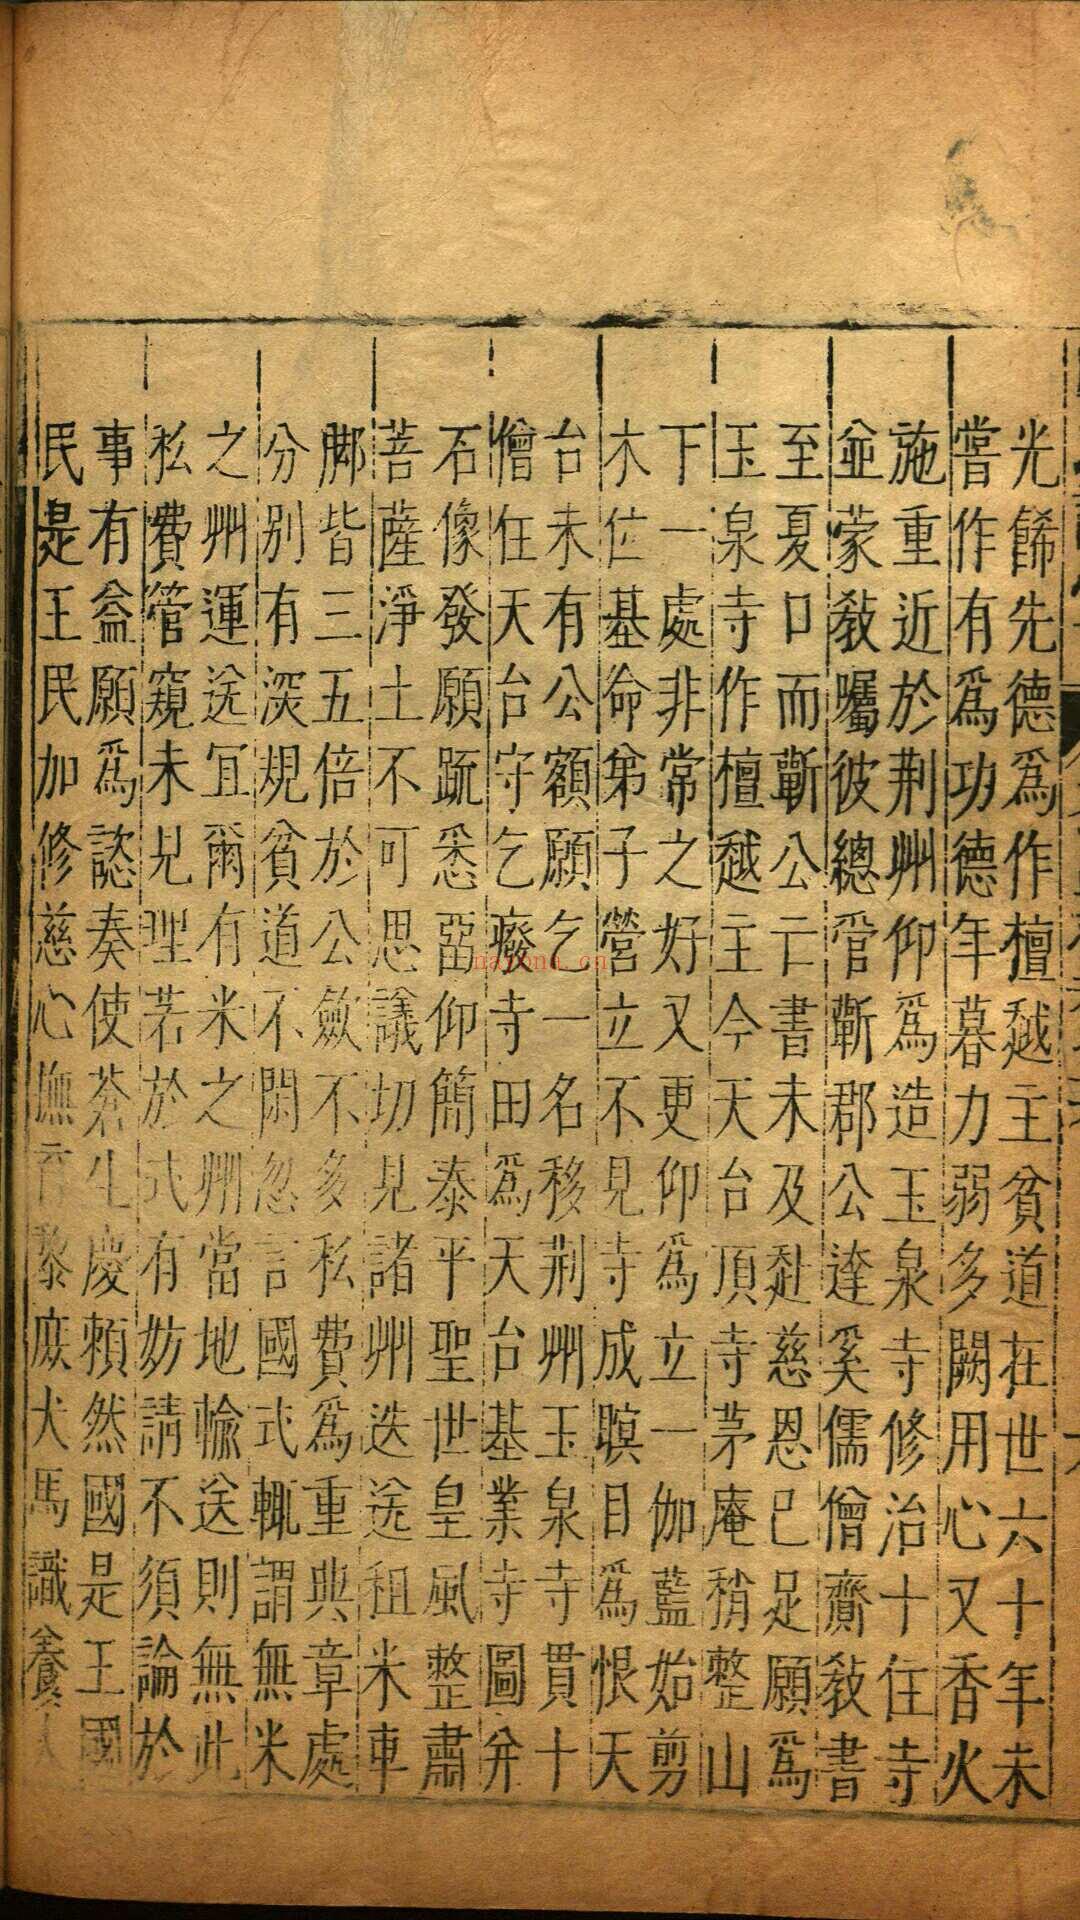 光餙先德爲作檀越主貧道在世六十年未
嘗作有爲功德年暮力弱多闕用心又香火
施重近於荆州仰爲造玉泉寺修治十住寺
並蒙教囑彼總管蘄郡公達奚儒僧齎教書
至夏口而蘄公亡書未及赴慈恩已足願爲
玉泉寺作檀越主今天台頂寺茅庵稍整山
下一處非常之好又更仰爲立一伽藍始剪
木位基命弟子營立不見寺成瞑目爲恨天
台未有公額願乞一名移荆州玉泉寺貫十
僧住天台守乞廢寺田爲天台基業寺圖并
石像發願䟽悉畱仰簡泰平聖世皇風整肅
菩薩淨土不可思議切見諸州迭送租米車
脚皆三五倍於公斂不多私費爲重典章處
分別有深規貧道不閑忽言國式輒謂無米
之州運送宜爾有米之州當地輸送則無此
私費管窺未見理若於式有妨請不須論於
事有益願爲諮奏使蒼生慶賴然國是王國
民是王民加修慈心撫育黎庶犬馬識養人